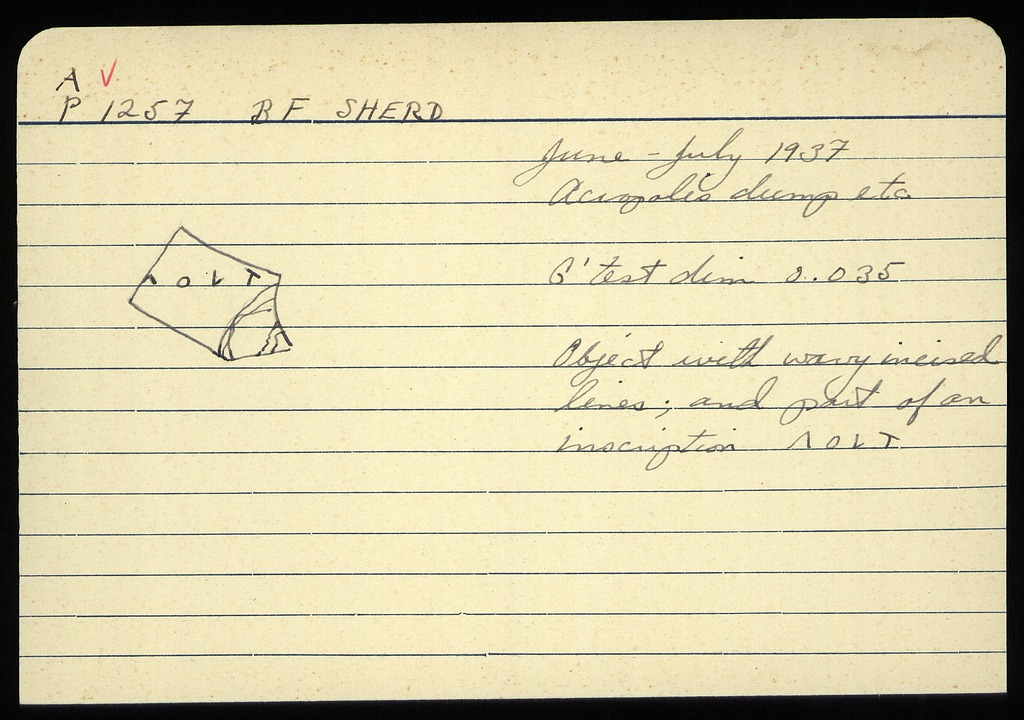 A V
P 1257 BF SHERD
June - July 1937
Acropolis dump etc
G'test dim 0.035
Λ O L T
Object with wavy incised
lines; and part of an
inscription Λ O L T